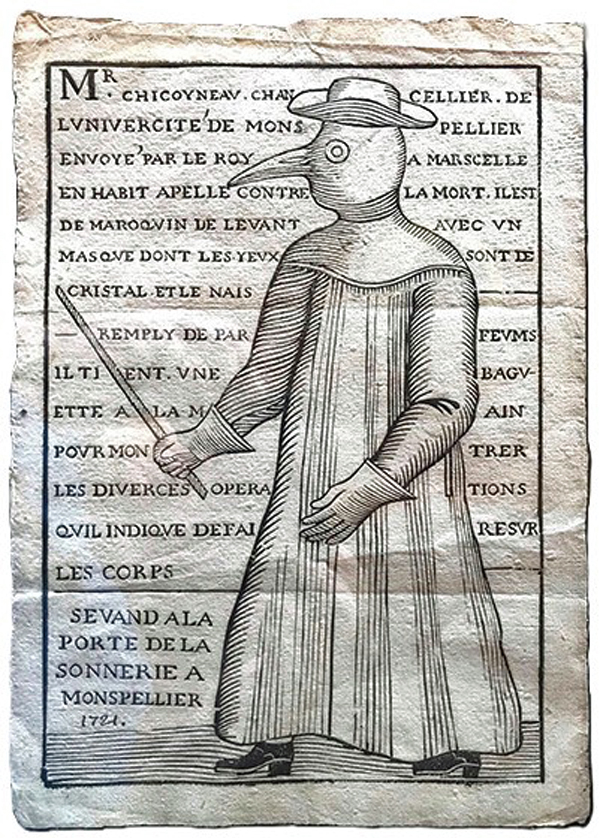 MR. CHICOYNEAV. CHAN CELLIER. DE
LVNIVERCITE DE MONS PELLIER
ENVOYE PAR LE ROY A MARSCELLE
EN HABIT APELLE CONTRE LA MORT. ILEST
DE MAROQVIN DE LEVANT AVEC VN
MASQVE DONT LES YEVX SONT DE
CRISTAL. ET LE NAIS
REMPLY DE PAR FEVMS
IL TI ENT. VNE BAGV-
ETTE A LA M AIN
POVR MON TRER
LES DIVERCES OPERA TIONS
QVIL INDIQVE DE FAI RE SVR
LES CORPS
SEVAND A LA
PORTE DE LA
SONNERIE A
MONSPELLIER
1721.